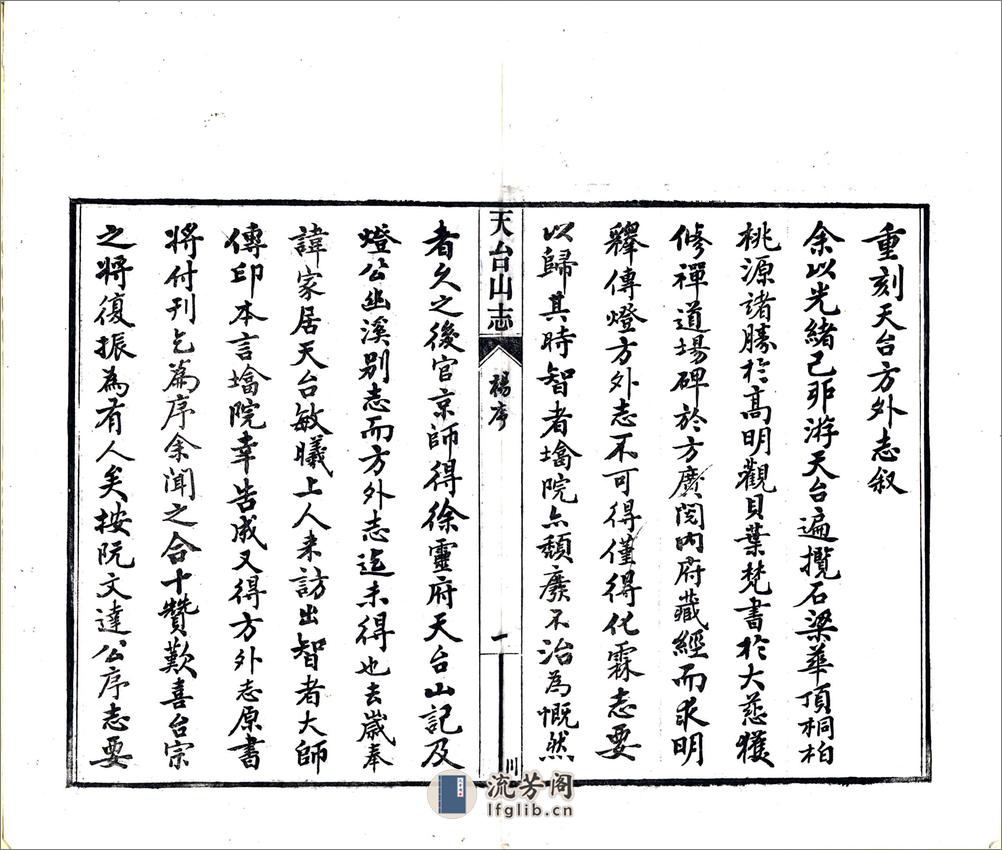 重刻天台方外志叙
余以光緒己卯游天台遍攬石梁華頂桐柏
桃源諸勝於高明觀貝葉梵書於大慈獲
修禪道場碑於方廣閱內府藏經而求明
釋傳燈方外志不可得僅得化霖志要
以歸其時智者墖院亦頹廢不治為慨然
天台山志
楊序
一
川
者久之後官京師得徐靈府天台山記及
燈公幽溪别志而方外志迄未得也去歲奉
諱家居天台敏曦上人来訪出智者大師
傳印本言墖院幸告成又得方外志原書
将付刊乞為序余聞之合十贊歎喜台宗
之將復振為有人矣按阮文達公序志要
流芳阁
lfglib.cn